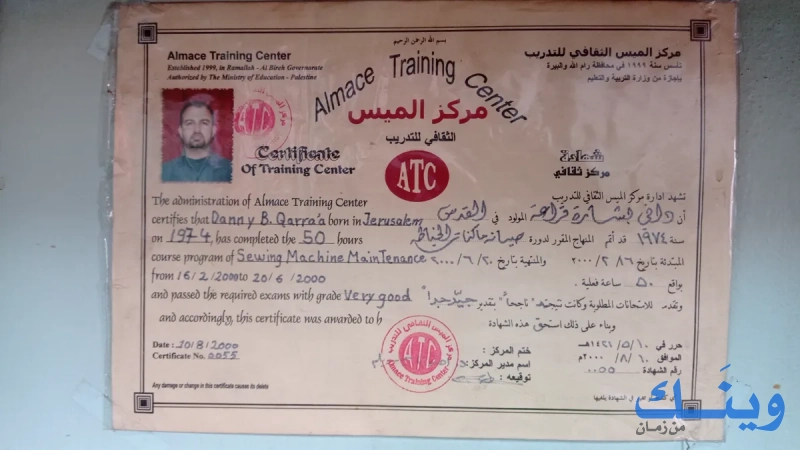 بسم الله الرحمن الرحيم
Almace Training Center
Established 1999, in Ramallah - Al Bireh Governorate
Authorized by The Ministry of Education - Palestine
مركز الميس الثقافي للتدريب
تأسس سنة ١٩٩٩ في محافظة رام الله والبيرة
بإجازة من وزارة التربية والتعليم
Almace Training Center
مركز الميس
الثقافي للتدريب
ATC
Certificate
Of Training Center
شهادة
مركز ثقافي
The administration of Almace Training Center
certifies that Danny B. Qarra'a born in Jerusalem
on 1974, has completed the 50 hours
course program of Sewing Machine MainTenance
from 16/2/2000 to 20/6/2000
and passed the required exams with grade Very good
and accordingly, this certificate was awarded to h
Date : 10/8/2000
Certificate No. 0055
Any damage or change in this certificate causes its delete
تشهد ادارة مركز الميس الثقافي للتدريب
أن داني بشارة قراعة المولود في القدس
سنة ١٩٧٤ قد أتم المنهاج المقرر لدورة صيانة ماكنات الخياطة
المبتدئة بتاريخ ٢٠٠٠/٢ والمنتهية بتاريخ ٢٠٠٠/٦/٢٠
بواقع ٥٠ ساعة فعلية .
وتقدم للامتحانات المطلوبة وكانت نتيجته "ناجحاً" بتقدير "جيد جداً"
وبناء على ذلك استحق هذه الشهادة
حرر في ١٤٢١/٥/١٠هـ
الموافق ٢٠٠٠/٨/١٠م
رقم الشهادة ٠٠٥٥
ختم المركز :
اسم مدير المركز :
توقيعه :
مركز الميس الثقافي للتدريب
ATC
Almace Training Center
في الشهادة يلغيها
وينك
من زمان